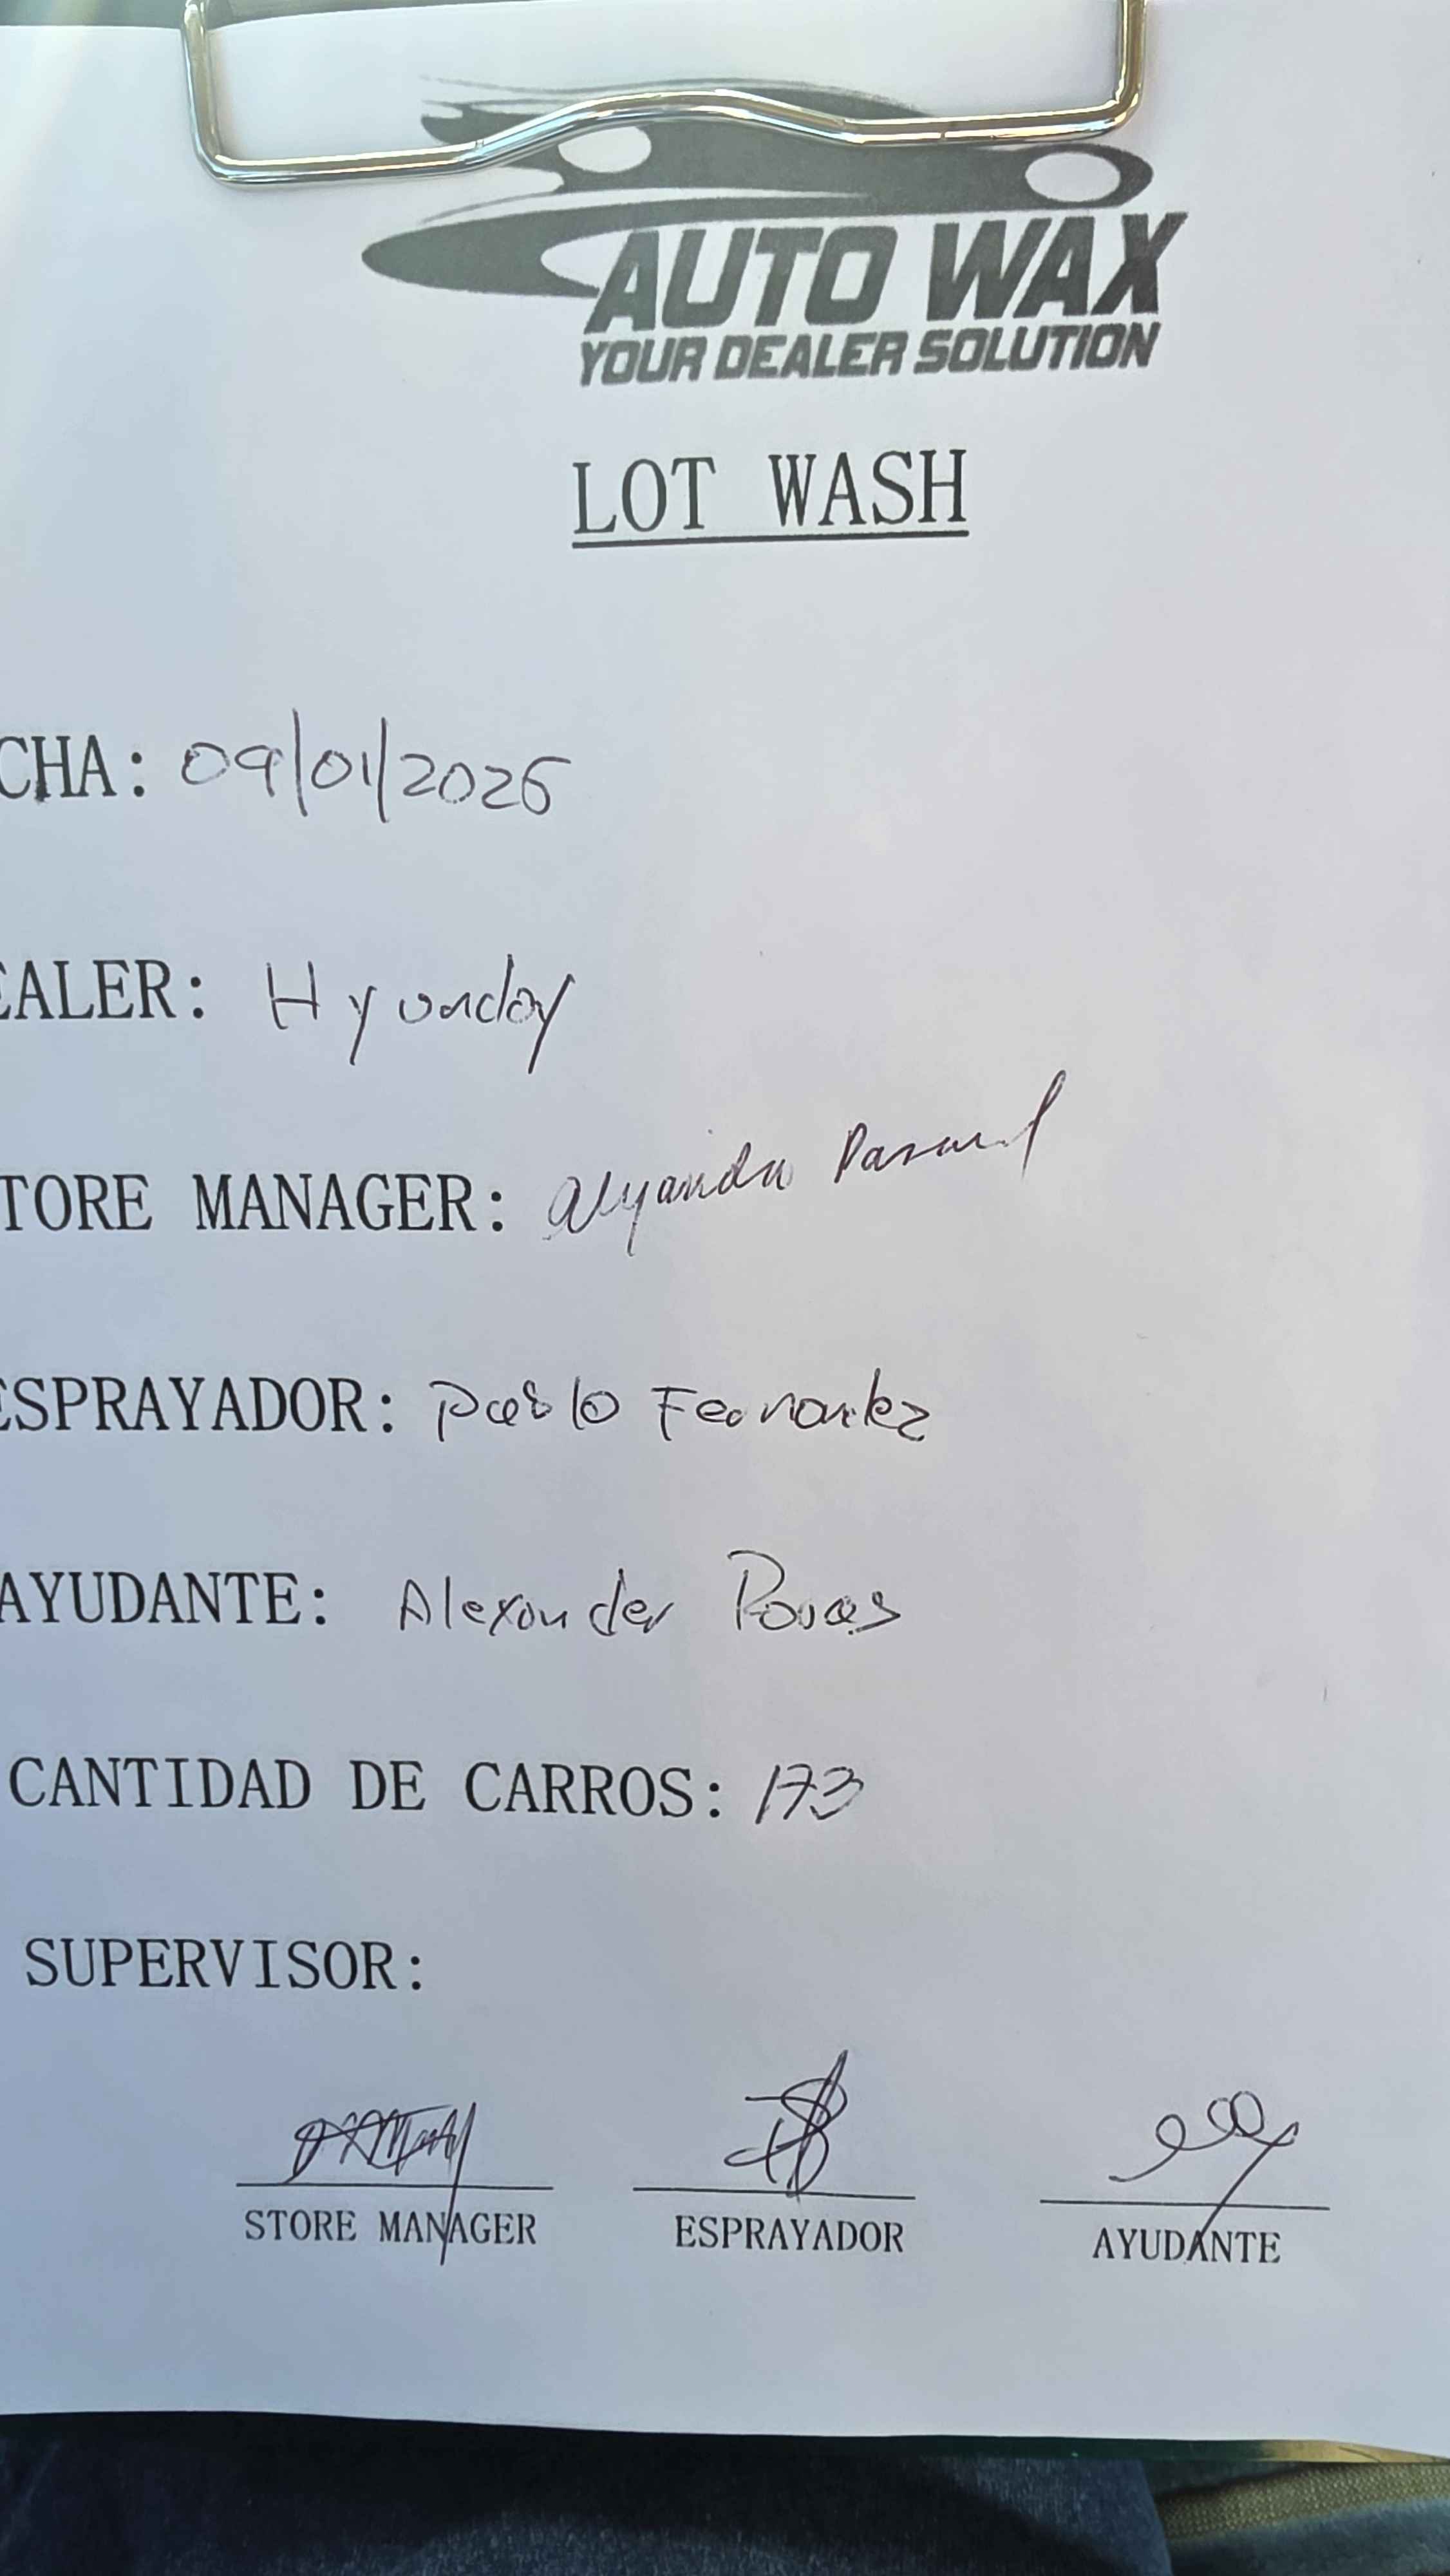 AUTO WAX
YOUR DEALER SOLUTION
LOT WASH
CHA: 09/01/2026
EALER: Hyunday
TORE MANAGER:
ESPRAYADOR: Pablo Fernandez
AYUDANTE: Alexander
CANTIDAD DE CARROS: 173
SUPERVISOR:
STORE MANAGER ESPRAYADOR AYUDANTE